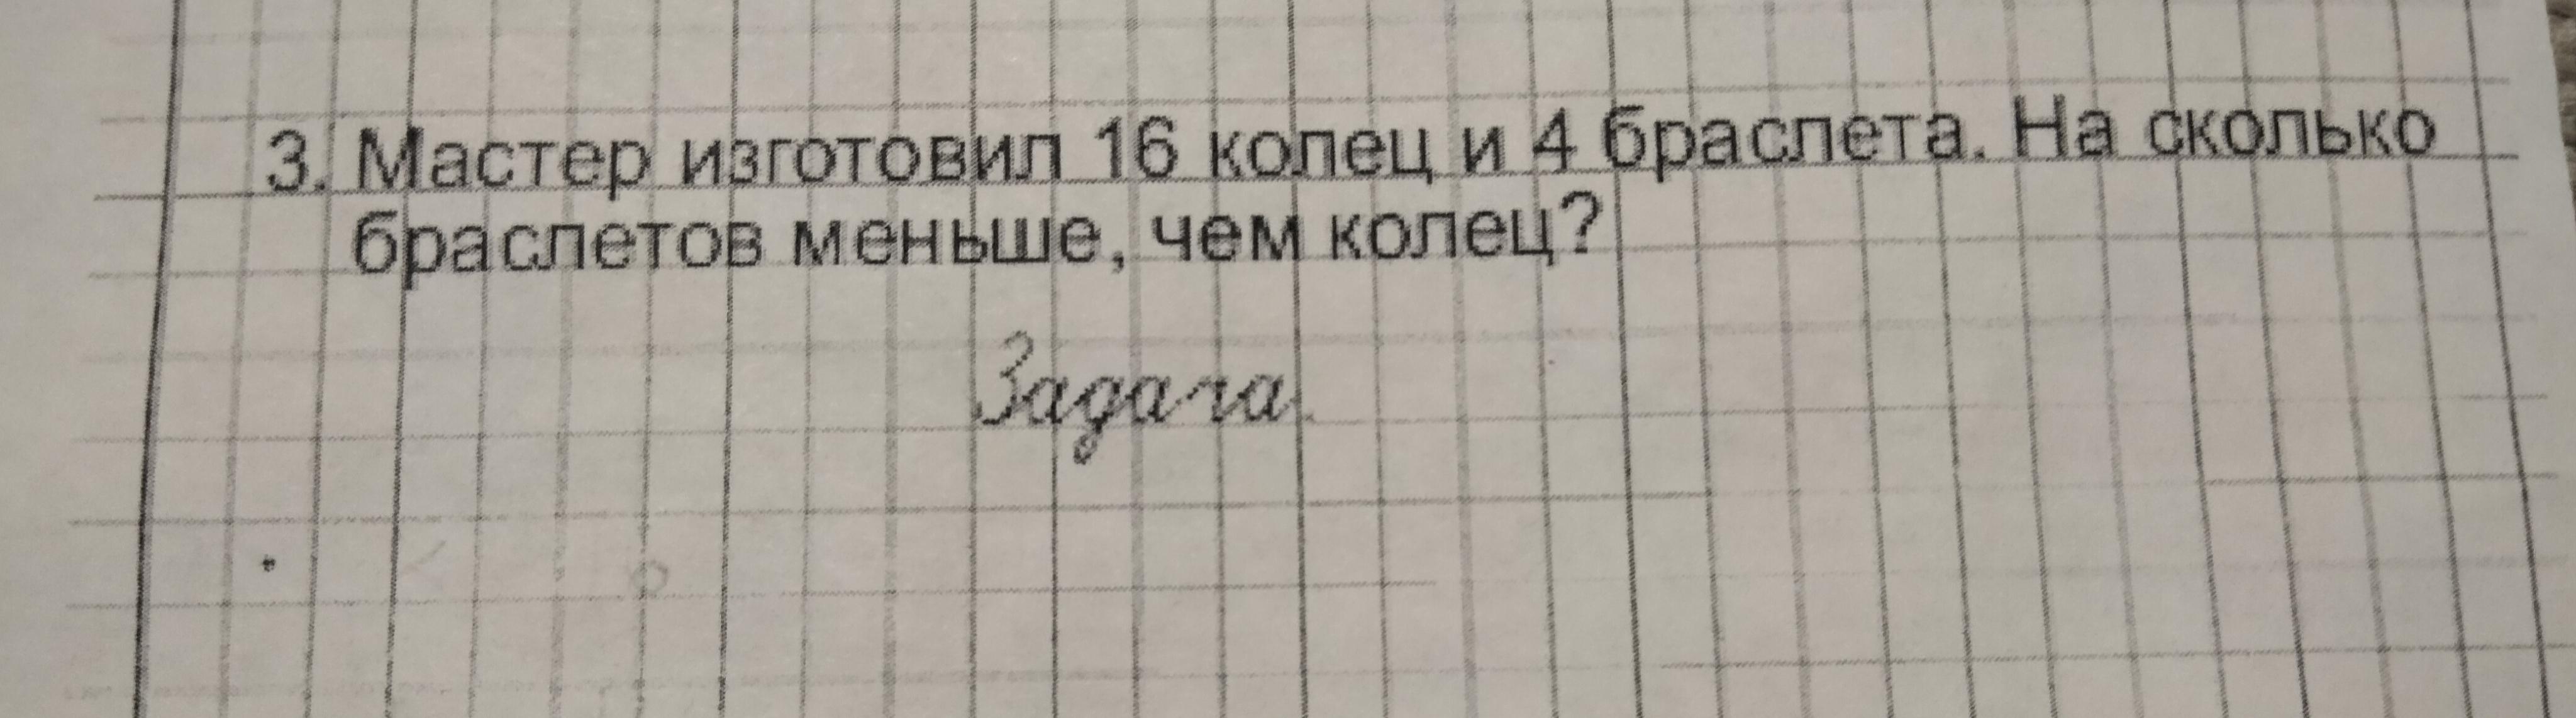 3. Мастер изготовил 16 колец и 4 браслета. На сколько
браслетов меньше, чем колец?
Задача.